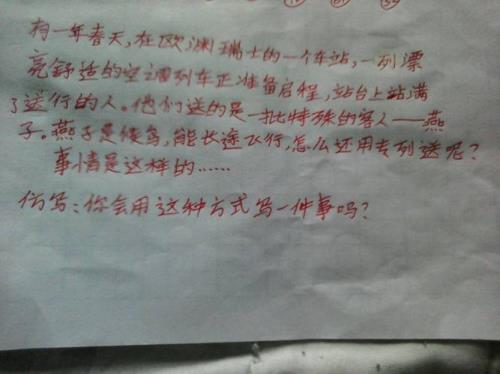 有一年春天,在欧洲瑞士的一个车站,一列漂
亮舒适的空调列车正准备启程,站台上站满
了送行的人。他们送的是一批特殊的客人——燕
子。燕子是候鸟,能长途飞行,怎么还用专列送呢?
事情是这样的……
仿写:你会用这种方式写一件事吗?